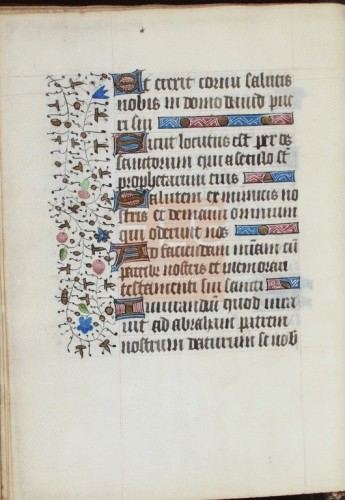 Et erexit cornu salutis
nobis in domo dauid pue
ri sui
Sicut locutus est per os
sanctorum qui a seculo st
prophetarum eius
Salutem ex inimicis no
stris et de manu omnium
qui oderunt nos
Ad faciendam miam cu
patribz nostris et memorari
testamenti sui sancti
Iusiurandu quod iura
uit ad abraham patrem
nostrum daturum se nob